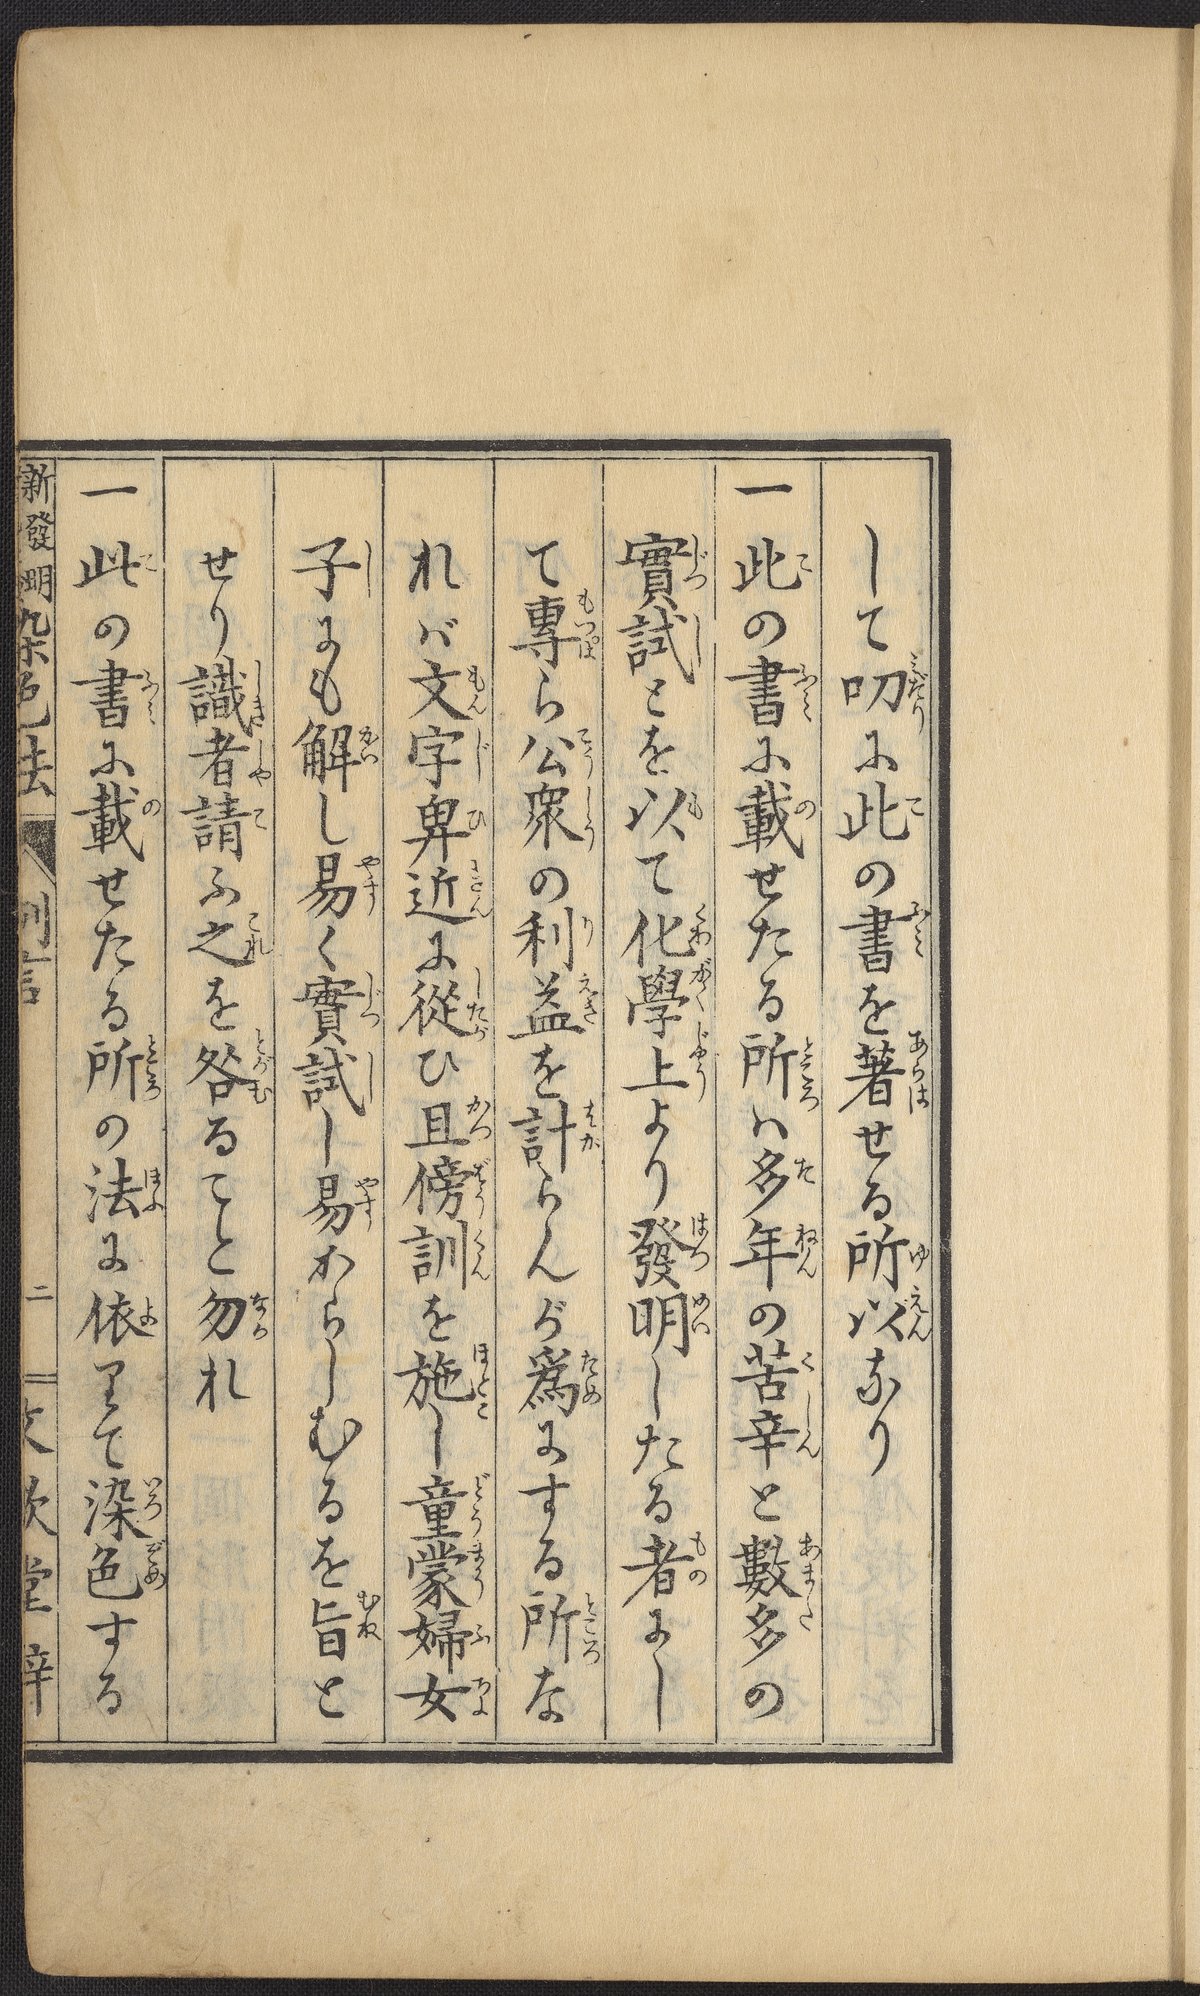 して叨に此の書を著せる所以なり
一此の書に載せたる所ハ多年の苦辛と數多の
實試とを以て化學上より發明したる者にし
て專ら公衆の利益を計らんが爲にする所な
れバ文字卑近に從ひ且傍訓を施し童蒙婦女
子にも解し易く實試し易からしむるを旨と
せり識者請ふ之を咎ること勿れ
一此の書に載せたる所の法に依りて染色する
新發明染色法
例言
二
文欽堂梓